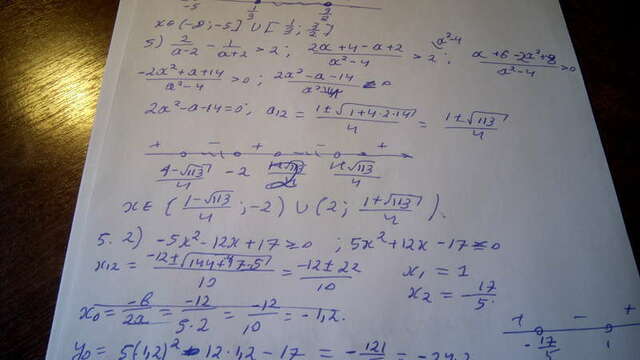 -5 1/3 3/2
x∈(-∞;-5] ∪ [1/3; 3/2]
5) 2/(a-2) - 1/(a+2) > 2; (2a+4-a+2)/(a²-4) > 2; (a+6-2a²+8)/(a²-4) > 0
a²-4
(-2a²+a+14)/(a²-4) > 0; (2a²-a-14)/(a²-4) < 0
2a²-a-14=0; a12 = (1±√(1+4·2·14))/4 = (1±√113)/4
+ - + - +
(1-√113)/4 -2 (1+√113)/4
x∈ ((1-√113)/4; -2) ∪ (2; (1+√113)/4).
5. 2) -5x²-12x+17≥0 ; 5x²+12x-17≤0
x12 = (-12±√(144+4·17·5))/10 = (-12±22)/10 x1 = 1
x2 = -17/5.
x0 = -b/2a = -12/(5·2) = -12/10 = -1,2.
+ - +
-17/5 1
y0 = 5(1,2)² - 12·1,2 - 17 = -121/5 = -24,2